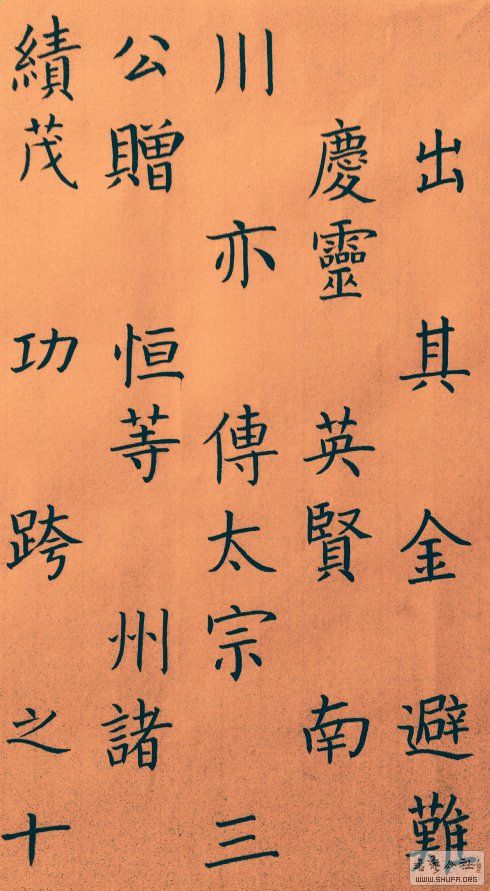 出其金避難
慶靈英賢南
川亦傳太宗三
公贈恒等州諸
績茂功跨之十
WWW.SHUFA.ORG